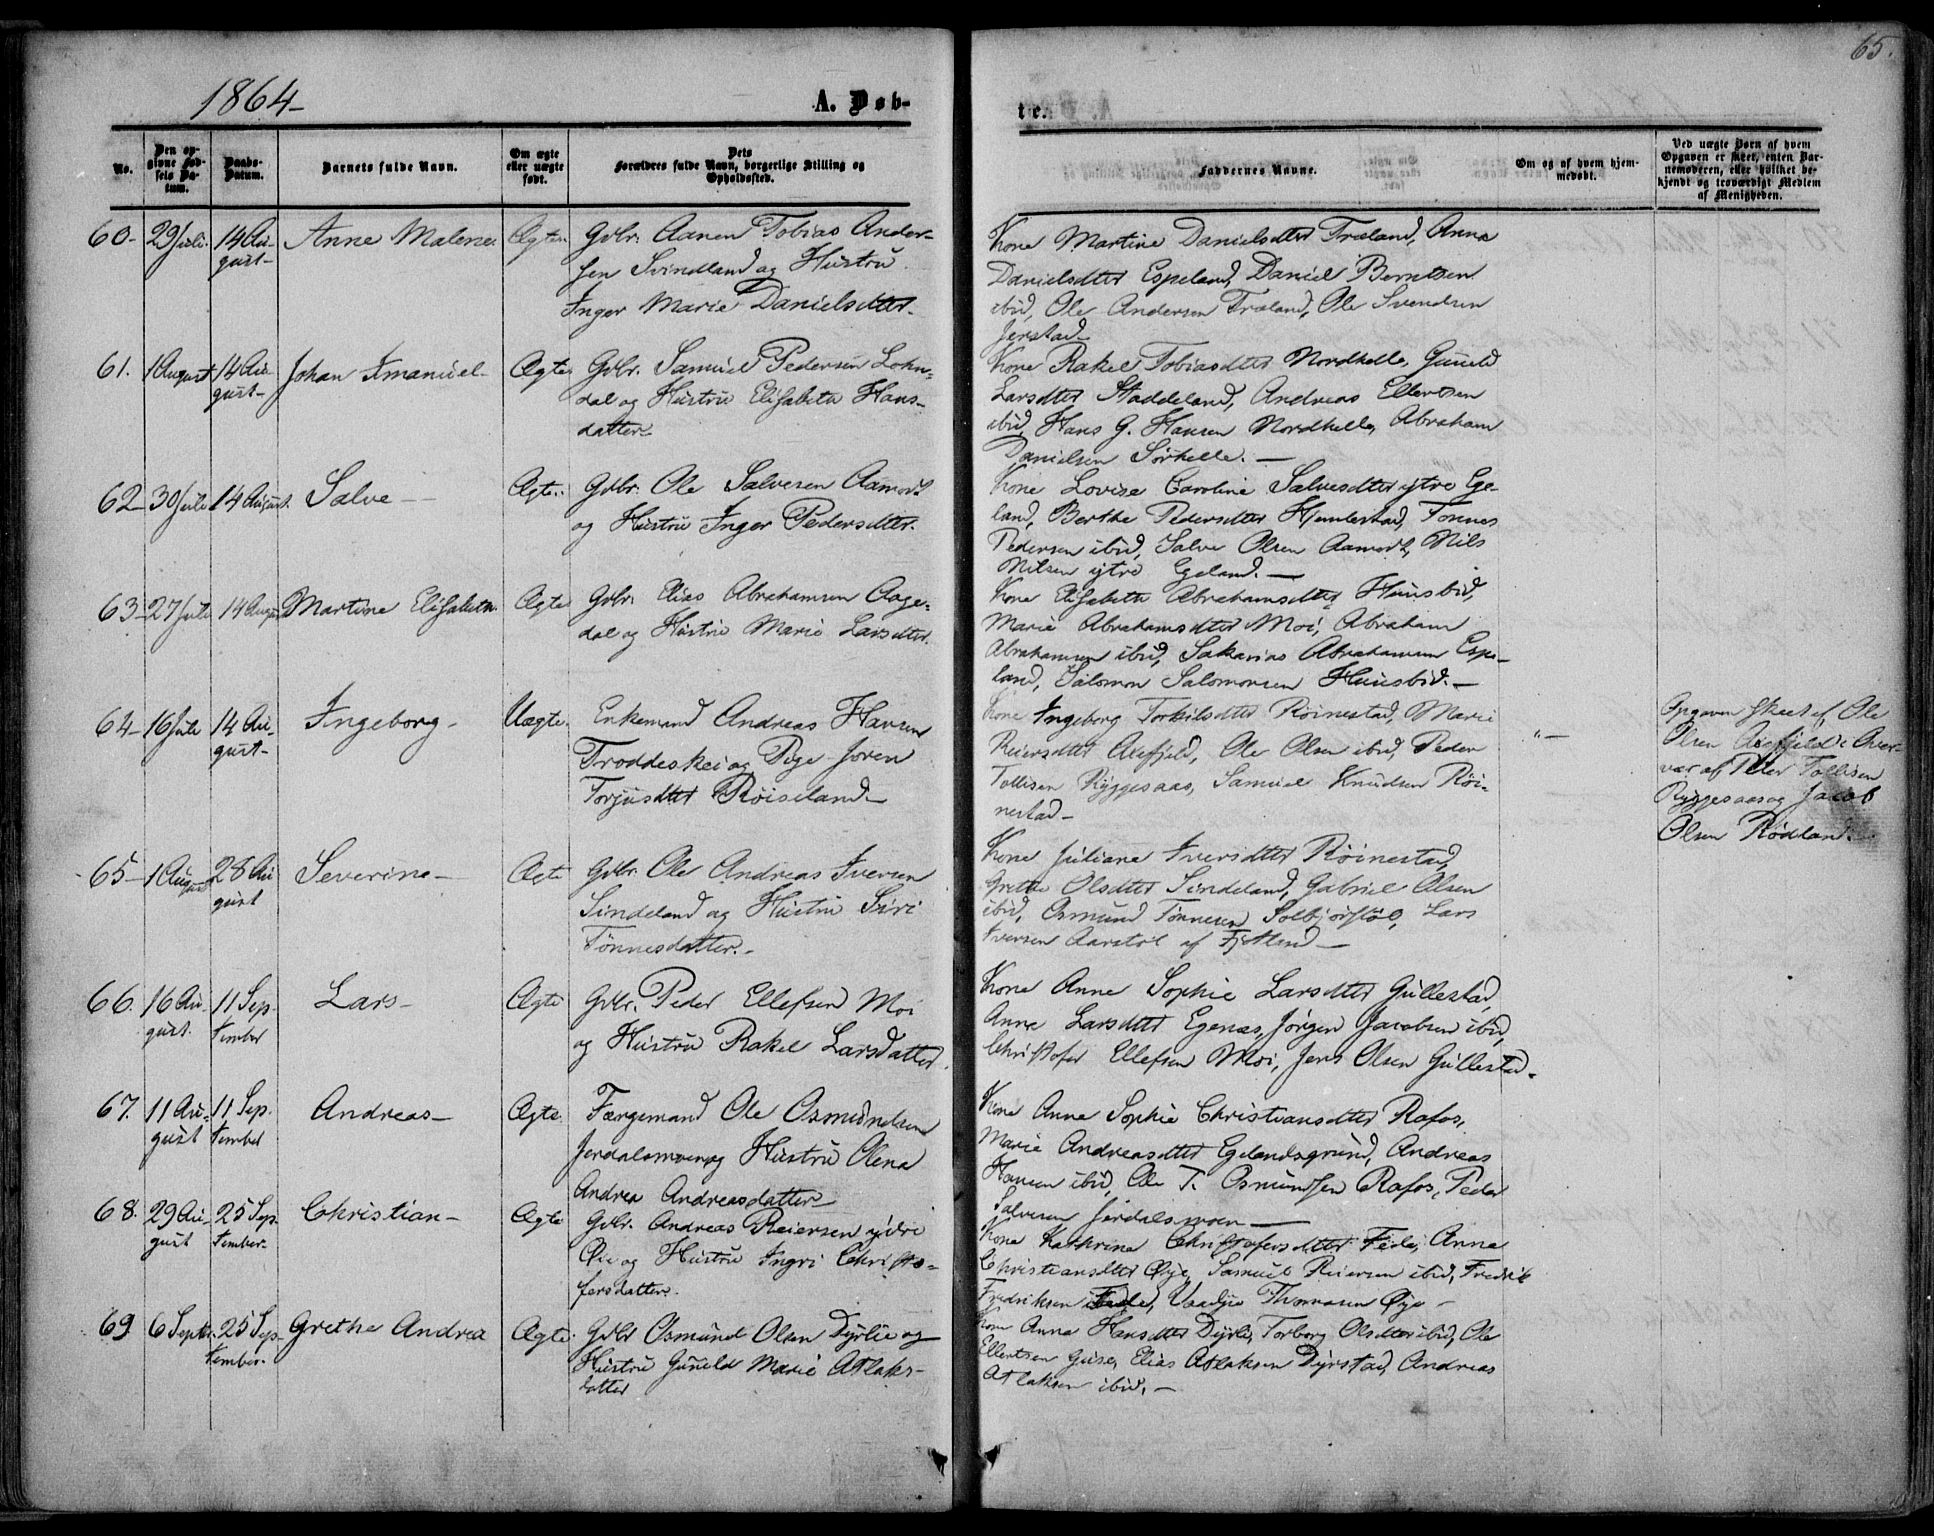 65.
1864
A. Døb-
te.
No.
Den op-
givne Fød-
sels Da-
tum.
Daabs-
Datum.
Barnets fulde Navn.
Om ægte
eller uægte
født.
Dets
Forældres fulde Navn, borgerlige Stilling og
Opholdssted.
Faddernes Navne.
Om og af hvem hjem-
medøbt.
Ved uægte Børn af hvem
Opgaven er skeet, enten Bar-
nemoderen, eller hvilket be-
kjendt og troværdigt Medlem
af Menigheden.
60- 29 Juli. 14 Au-
gust-
Anne Malene Ægte. Gdbr. Aanen Tobias Ander-
sen Svindland og Hustru
Inger Marie Danielsdtter.
Kone Martine Danielsdtter Træland, Anna
Danielsdtter Espeland, Daniel Berntsen
ibid, Ole Andersen Træland, Ole Svendsen
Jerstad
61. 1 August 14 Au-
gust-
Johan Imanuel- Ægte Gdbr. Samuel Pedersen Lohn-
dal og Hustru Elisabeth Hans-
datter-
Kone Rakel Tobiasdtter Nordhelle, Guneld
Larsdtter Haddeland, Andreas Ellertsen
ibid, Hans G. Hansen Nordhelle, Abraham
Danielsen Sørhelle. —
62- 30 Juli 14 August. Salve — Ægte. Gdbr. Ole Salvesen Aamodt
og Hustru Inger Pedersdtter.
Kone Lovise Caroline Salvesdtter ytre Ege-
land, Berthe Pedersdtter Hemlestad, Tønnes
Pedersen ibid, Salve Olsen Aamodt, Nils
Nilsen ytre Egeland. —
63- 27 Juli 14 August Martine Elisabeth. Ægte Gdbr. Elias Abrahamsen Aage-
dal og Hustru Marie Larsdtter.
Kone Elisabeth Abrahamsdtter Huusbid,
Marie Abrahamsdtter Moi, Abraham
Abrahamsen ibid, Sakarias Abrahamsen Espe-
land, Salomon Salomonsen Huusbid. —
64- 16 Juli 14 Au-
gust-
Ingeborg- Uægte. Enkemand Andreas Hansen
Troddeskei og Pige Joren
Torjusdtter Røiseland-
Kone Ingeborg Torkilsdtter Røinestad, Marie
Reiersdtter Aefjeld, Ole Olsen ibid, Peder
Tollisen Ryggesaas, Samuel Knudsen Røi-
nestad-
"—
Opgaven skeet af Ole
Olsen Aefjeld i Over-
vær af Peder Tollisen
Ryggesaas og Jacob
Olsen Rødland.
65- 1 August 28 Au
gust
Severine- Ægte Gdbr. Ole Andreas Iversen
Sindeland og Hustru Siri
Tønnesdatter.-
Kone Juliane Iversdtter Røinestad,
Grethe Olsdtter Sindeland, Gabriel Olsen
ibid, Osmund Tønnesen Solbjørstøl, Lars
Iversen Aarstøl af Fjotland —
66. 16 Au-
gust.
11 Sep-
tember
Lars- Ægte Gdbr. Peder Ellefsen Moi
og Hustru Rakel Larsdatter.
Kone Anne Sophie Larsdtter Gullestad,
Anne Larsdtter Egenæs, Jørgen Jacobsen ibid,
Christofer Ellefsen Moi, Jens Olsen Gullestad.
67. 11 Au-
gust
11 Sep.
tember
Andreas- Ægte. Færgemand Ole Osmundsen
Jerdalsmoen og Hustru Olena
Andrea Andreasdatter-
Kone Anne Sophie Christiansdtter Rafos,
Marie Andreasdtter Egelandsgrund, Andreas
Hansen ibid, Ole T. Osmundsen Rafos, Peder
Salvesen Jerdalsmoen —
68. 29 Au-
gust
25 Sep-
tember-
Christian- Ægte Gdbr. Andreas Reiersen ydre
Øie og Hustru Ingri Christo-
fersdatter.
Kone Kathrine Christofersdtter Fede, Anne
Christiansdtter Øye, Samuel Reiersen ibid, Fredrik
Fredriksen Fede, Thomasen Øye -
69 6 Septbr. 25 Sep-
tember-
Grethe Andrea Ægte. Gdbr Osmund Olsen Dyrlie og
Hustru Guneld Marie Atlaks-
datter
Kone Anna Hansdtter Dyrlie, Torborg Olsdtter ibid, Ole
Ellertsen Guse, Elias Atlaksen Dyrstad, Andreas
Atlaksen ibid. —